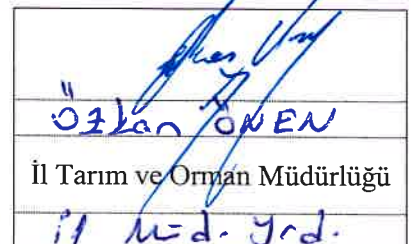 Özkan ÖNEN
İl Tarım ve Orman Müdürlüğü
İl Müd. Yrd.